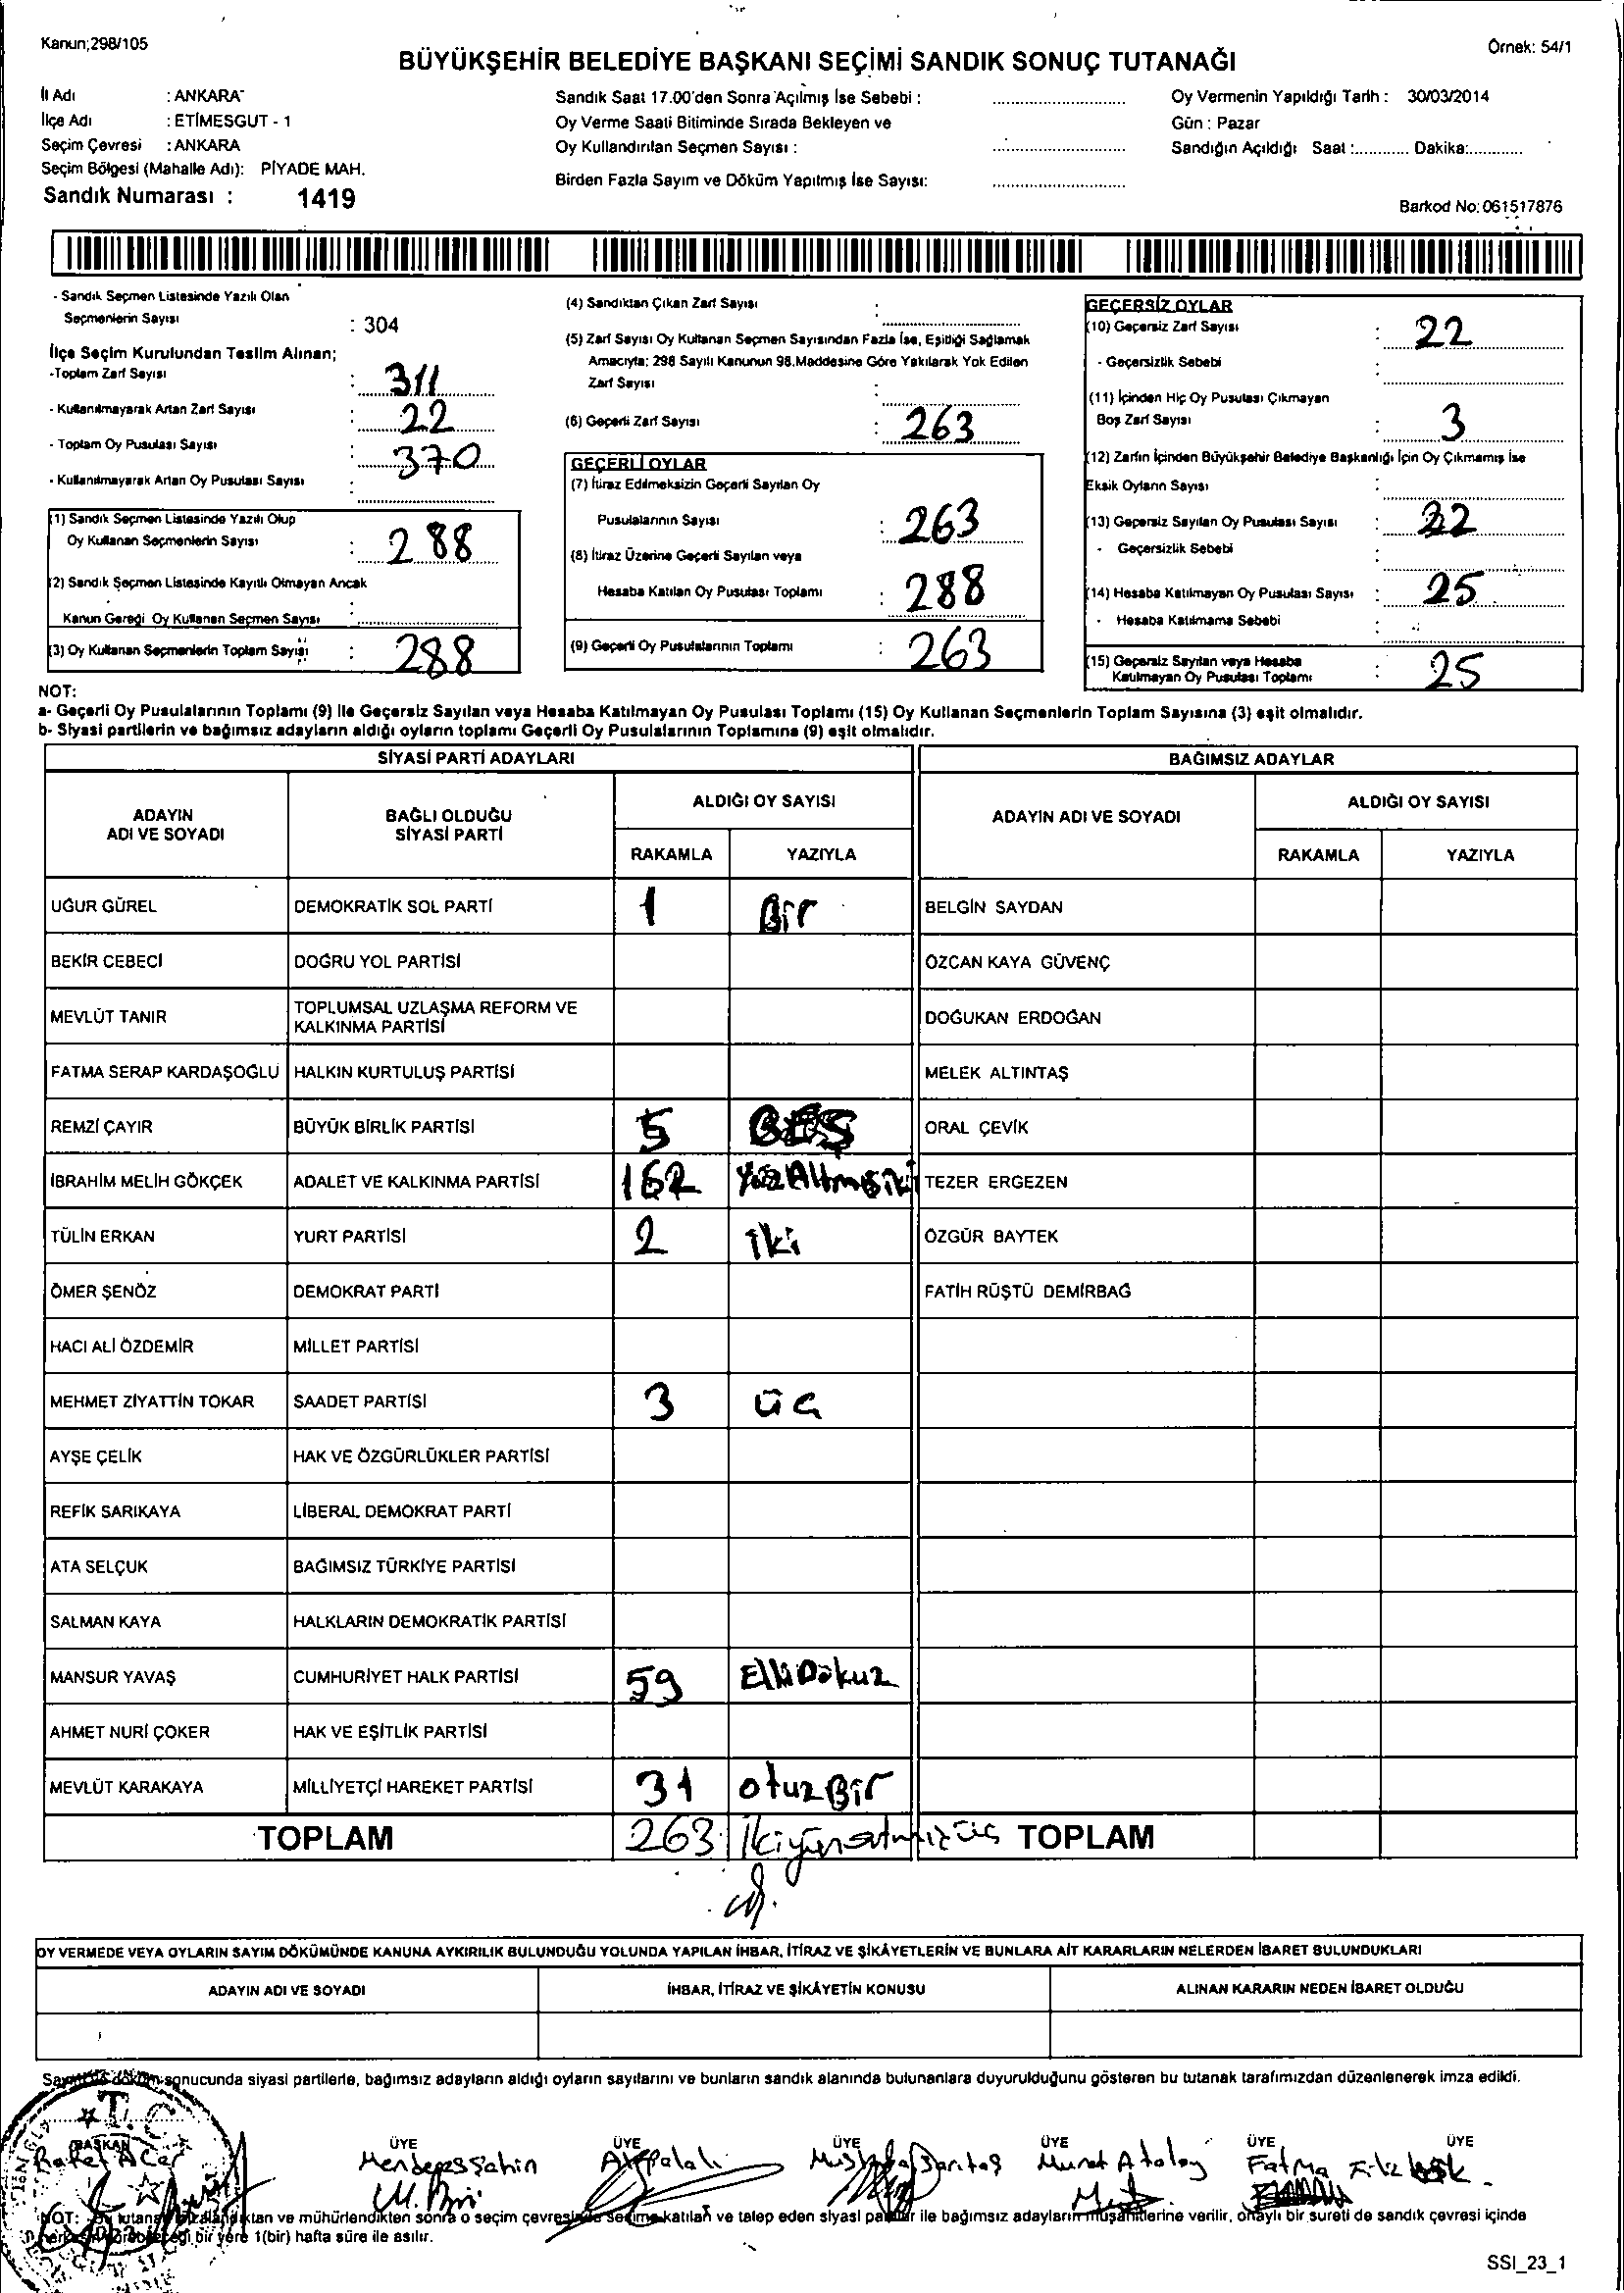 Kanun;298/105
Örnek: 54/1
BÜYÜKŞEHİR BELEDİYE BAŞKANI SEÇİMİ SANDIK SONUÇ TUTANAĞI
İl Adı : ANKARA
İlçe Adı : ETİMESGUT - 1
Seçim Çevresi : ANKARA
Seçim Bölgesi (Mahalle Adı): PİYADE MAH.
Sandık Numarası : 1419
Sandık Saat 17.00'den Sonra Açılmış İse Sebebi :
Oy Verme Saati Bitiminde Sırada Bekleyen ve
Oy Kullandırılan Seçmen Sayısı :
Birden Fazla Sayım ve Döküm Yapılmış İse Sayısı:
Oy Vermenin Yapıldığı Tarih : 30/03/2014
Gün : Pazar
Sandığın Açıldığı Saat :............ Dakika:............
Barkod No: 061517876
- Sandık Seçmen Listesinde Yazılı Olan
Seçmenlerin Sayısı : 304
İlçe Seçim Kurulundan Teslim Alınan;
-Toplam Zarf Sayısı : 311
- Kullanılmayarak Artan Zarf Sayısı : 22
- Toplam Oy Pusulası Sayısı : 370
- Kullanılmayarak Artan Oy Pusulası Sayısı :
(1) Sandık Seçmen Listesinde Yazılı Olup
Oy Kullanan Seçmenlerin Sayısı : 288
(2) Sandık Seçmen Listesinde Kayıtlı Olmayan Ancak
Kanun Gereği Oy Kullanan Seçmen Sayısı :
(3) Oy Kullanan Seçmenlerin Toplam Sayısı : 288
(4) Sandıktan Çıkan Zarf Sayısı :
(5) Zarf Sayısı Oy Kullanan Seçmen Sayısından Fazla İse, Eşitliği Sağlamak
Amacıyla; 298 Sayılı Kanunun 98.Maddesine Göre Yakılarak Yok Edilen
Zarf Sayısı :
(6) Geçerli Zarf Sayısı : 263
GEÇERLİ OYLAR
(7) İtiraz Edilmeksizin Geçerli Sayılan Oy
Pusulalarının Sayısı : 263
(8) İtiraz Üzerine Geçerli Sayılan veya
Hesaba Katılan Oy Pusulası Toplamı : 288
(9) Geçerli Oy Pusulalarının Toplamı : 263
GEÇERSİZ OYLAR
(10) Geçersiz Zarf Sayısı : 22
- Geçersizlik Sebebi :
(11) İçinden Hiç Oy Pusulası Çıkmayan
Boş Zarf Sayısı : 3
(12) Zarfın İçinden Büyükşehir Belediye Başkanlığı İçin Oy Çıkmamış İse
Eksik Oyların Sayısı :
(13) Geçersiz Sayılan Oy Pusulası Sayısı : 22
- Geçersizlik Sebebi :
(14) Hesaba Katılmayan Oy Pusulası Sayısı : 25
- Hesaba Katılmama Sebebi :
(15) Geçersiz Sayılan veya Hesaba
Katılmayan Oy Pusulası Toplamı : 25
NOT:
a- Geçerli Oy Pusulalarının Toplamı (9) ile Geçersiz Sayılan veya Hesaba Katılmayan Oy Pusulası Toplamı (15) Oy Kullanan Seçmenlerin Toplam Sayısına (3) eşit olmalıdır.
b- Siyasi partilerin ve bağımsız adayların aldığı oyların toplamı Geçerli Oy Pusulalarının Toplamına (9) eşit olmalıdır.
SİYASİ PARTİ ADAYLARI
BAĞIMSIZ ADAYLAR
ADAYIN ADI VE SOYADI
BAĞLI OLDUĞU SİYASİ PARTİ
ALDIĞI OY SAYISI
ADAYIN ADI VE SOYADI
ALDIĞI OY SAYISI
RAKAMLA YAZIYLA
RAKAMLA YAZIYLA
UĞUR GÜREL DEMOKRATİK SOL PARTİ 1 Bir BELGİN SAYDAN
BEKİR CEBECİ DOĞRU YOL PARTİSİ ÖZCAN KAYA GÜVENÇ
MEVLÜT TANIR TOPLUMSAL UZLAŞMA REFORM VE KALKINMA PARTİSİ DOĞUKAN ERDOĞAN
FATMA SERAP KARDAŞOĞLU HALKIN KURTULUŞ PARTİSİ MELEK ALTINTAŞ
REMZİ ÇAYIR BÜYÜK BİRLİK PARTİSİ 5 BEŞ ORAL ÇEVİK
İBRAHİM MELİH GÖKÇEK ADALET VE KALKINMA PARTİSİ 162 YüzAltmışiki TEZER ERGEZEN
TÜLİN ERKAN YURT PARTİSİ 2 iki ÖZGÜR BAYTEK
ÖMER ŞENÖZ DEMOKRAT PARTİ FATİH RÜŞTÜ DEMİRBAĞ
HACI ALİ ÖZDEMİR MİLLET PARTİSİ
MEHMET ZİYATTİN TOKAR SAADET PARTİSİ 3 üç
AYŞE ÇELİK HAK VE ÖZGÜRLÜKLER PARTİSİ
REFİK SARIKAYA LİBERAL DEMOKRAT PARTİ
ATA SELÇUK BAĞIMSIZ TÜRKİYE PARTİSİ
SALMAN KAYA HALKLARIN DEMOKRATİK PARTİSİ
MANSUR YAVAŞ CUMHURİYET HALK PARTİSİ 59 ElliDokuz
AHMET NURİ ÇOKER HAK VE EŞİTLİK PARTİSİ
MEVLÜT KARAKAYA MİLLİYETÇİ HAREKET PARTİSİ 31 otuzBir
TOPLAM 263 ikiyüzatmışüç TOPLAM
OY VERMEDE VEYA OYLARIN SAYIM DÖKÜMÜNDE KANUNA AYKIRILIK BULUNDUĞU YOLUNDA YAPILAN İHBAR, İTİRAZ VE ŞİKÂYETLERİN VE BUNLARA AİT KARARLARIN NELERDEN İBARET BULUNDUKLARI
ADAYIN ADI VE SOYADI İHBAR, İTİRAZ VE ŞİKÂYETİN KONUSU ALINAN KARARIN NEDEN İBARET OLDUĞU
Sayım ve döküm sonucunda siyasi partilerle, bağımsız adayların aldığı oyların sayılarını ve bunların sandık alanında bulunanlara duyurulduğunu gösteren bu tutanak tarafımızdan düzenlenerek imza edildi.
T.C.
BAŞKAN ÜYE ÜYE ÜYE ÜYE ÜYE ÜYE
Acar Menderes Şahin Mustafa Sarıtaş Murat Atalay Fatma Filiz
NOT: Bu tutanak imzalandıktan ve mühürlendikten sonra o seçim çevresinde seçime katılan ve talep eden siyasi partiler ile bağımsız adayların müşahitlerine verilir, onaylı bir sureti de sandık çevresi içinde
herkesin görebileceği bir yere 1(bir) hafta süre ile asılır.
SSI_23_1